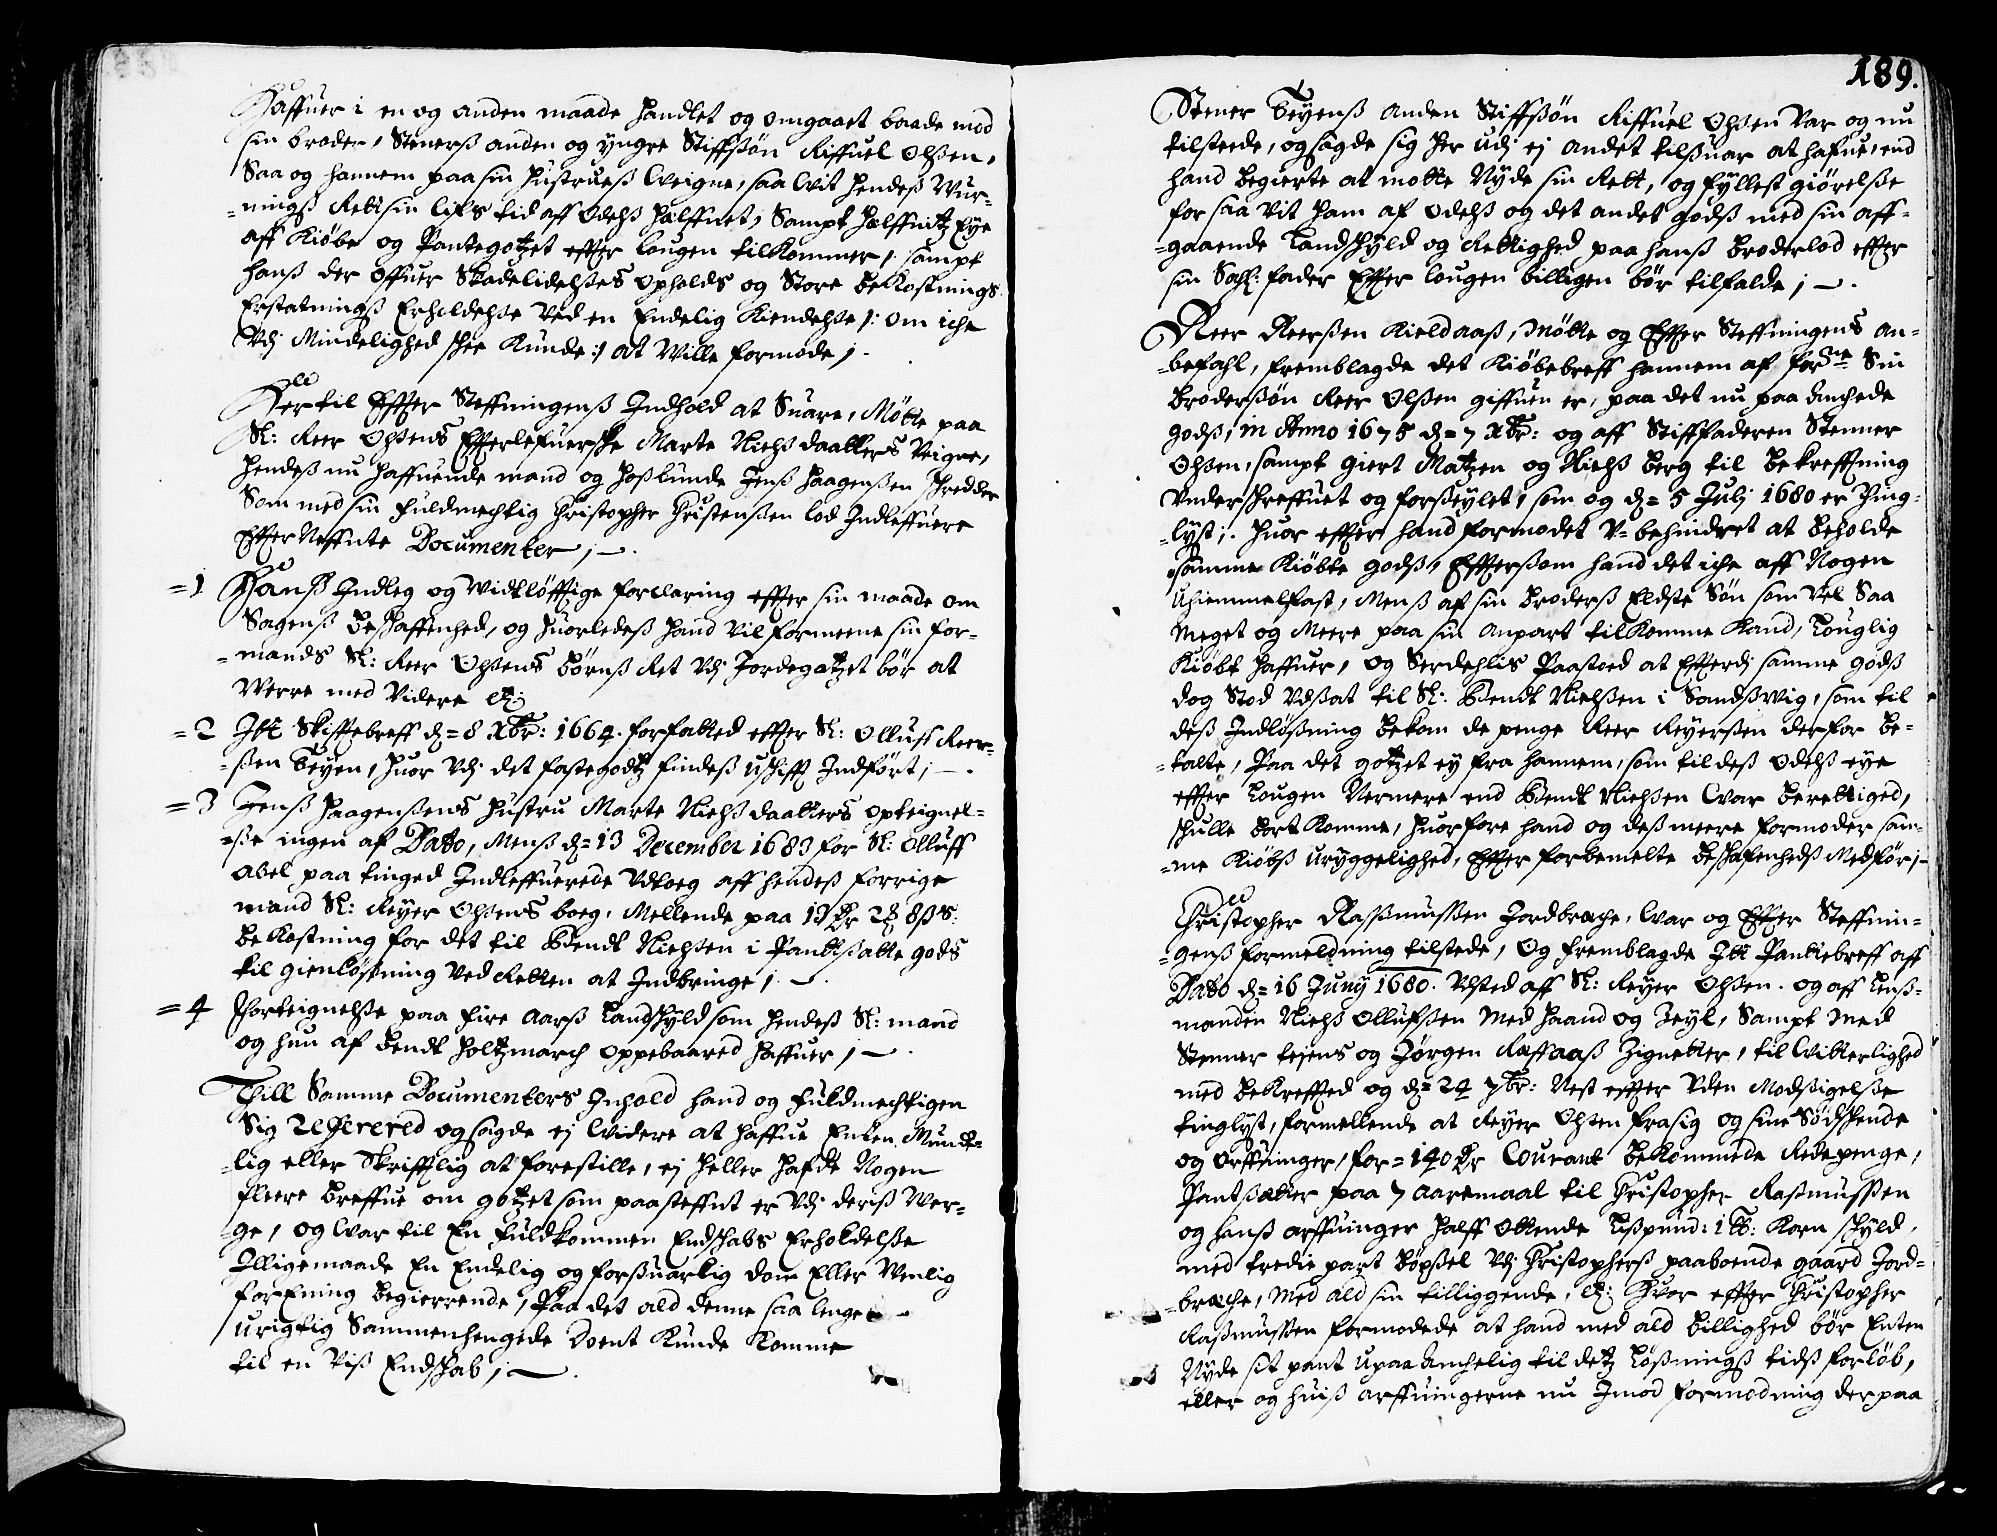 Haffuer i en og anden maade handlet og omgaaet baade mod
sin broder, Steners anden og yngre Stiffsøn Riffuel Olsen,
Saa og hannem paa sin Hustrues Weigne, saa wit hendes
nings Rett sin lifs tid aff Odels Halffuet, Sampt Halffuit Eye
aff Kiøbe og Pantegotzet effter lougen tilkommer, sampt
hans der offuer Skadelidelses Opholds og Store bekostnings
Erstatnings Erholdelse ved en Endelig Kiendelse /: om iche
Vdj Mindelighed skee Kunde :/ at Wille formode; -
Her til Effter Steffningens Indhold at Suare, Møtte paa
Sl: Reer Olsens Effterlefuerske Marte Niels daatters Veigne,
hendes nu haffuende mand og hoslunde Jens Haagensen skredder
Som med sin fuldmechtig Christopher Christensen lod Indleffuere
Effter Neffnte Documenter; -
= 1 Hans Indleg og widtløfftige forclaring effter sin maade om
Sagens beskaffenhed, og huorledes hand vil formeene sin for-
= mands Sl: Reer Olsens børns Ret Vdj Jordegotzet bør at
Werre med videre etc:
= 2 Itt Skifftebreff d = 8 Xbr: 1664. forfatted effter Sl: Olluff Reer-
= sen Teyen, huor Vdj det fastegodtz findes uskifft Indført; -
= 3 Jens Haagensens Hustru Marte Niels daatters opteignel-
= se ingen af Dato, Mens d = 13 December 1683 for Sl: Olluff
Abel paa tinged Indleffuerede Vdtoeg aff hendes forrige
mand Sl: Reyer Olsens boeg, Mellende paa 19 Dr 2 8 ss:
bekostning for det til Bendt Nielsen i Pantsatte gods
til gienløsning ved Retten at Indbringe; -
= 4 Forteignelse paa fire Aars Landskyld som hendes Sl: mand
og hun af Bendt Holtzmarch oppebaared haffuer; -
Till Samme Documenters Inhold hand og fuldmechtigen
Sig Refererede og sagde ej widere at haffue Enten Mundt-
lig eller Skrifftlig at forestille, ej heller hafde Nogen
fleere breffue om gotzet som paasteffnt er Vdj deris Wer-
ge, og war til En fuldkommen Endskabs Erholdelse
Illigemaade En Endelig og forsuarlig dom Eller Wenlig
forEning begierrende, Paa det ald denne saa lenge
urigtig Sammenhengede Kunde Komme
til en Viss Endskab; -

189.
Stener Teyens Anden Stiffsøn Riffuel Olsen var og nu
tilstede, og sagde sig her udj ej andet tilsuar at hafue, end
hand begierte at motte Nyde sin Rett, og fyllest giørelse
for saa vit ham af Odels og det andet gods med sin aff-
= gaaende Landskyld og Rettighed paa hans broderlod effter
sin Sahl: fader Effter lougen billigen bør tilfalde; -
Reer Reersen Kieldaas, Møtte og Effter Steffningens an-
= befahl, fremblagde det Kiøbebreff hannem af forne Sin
Brodersøn Reer Olsen giffuen er, paa det nu paa anchede
gods, in Anno 1675 d = 7 Xbr: og aff Stiffaderen Stenner
Olsen, sampt Giert Matzen og Niels Berg til bekrefftning
Vnderskreffuet og forseiglet, som og d = 5 Julj 1680 er Ting-
= lyst;. huor effter hand formodet V-behindret at beholde
samme Kiøbte gods, Efftersom hand det iche aff Nogen
Uhiemmelfast, Mens af sin broders Eldste Søn som vel Saa
Meget og Meere paa sin anpart tilkomme Kand, Louglig
Kiøbt haffuer, og Serdehlis Paastoed at Efterdj samme gods
dog Stod Vdsat til Sl: Bendt Nielsen i Sandswig, som til
des Indløsning bekom de penge Reer Reyersen derfor be-
= talte, Paa det gotzet ey fra hannem, som til des Odels eye
effter Lougen Vermere end Bendt Nielsen war berettiged,
skulle bort Komme, huorfore hand og des meere formoder sam-
= me Kiøbs uryggelighed, Effter forbemelte beskafenheds Medfør; -
Christopher Rasmussen Jordbreche, war og Effter Steffnin-
= gens formeldning tilstede, Og fremblagde Itt Panttebreff aff
Dato d = 16 Junij 1680. Vdsted aff Sl: Reyer Olsen. og aff Lens-
manden Niels Ollufsen med Haand og Zeyl, Sampt med
Stenner teiens og Jørgen Raffaas Zignetter, til witterlighed
med bekrefted og d = 24 7br: Nest effter Vden Modsigelse
tinglyst, formellende at Reyer Olsen fra sig og sine Sødskende
og Arffuinger, for = 140 Dr Courant bekommede Rede penge,
Pantsætter paa 7 aaremaal til Christopher Rasmussen
og hans arffuinger halff Ottende Lispund: 1 lb: Korn skyld,
med tredie part bøxsel Vdj Christophers paaboende gaard Jord-
= breche, med ald sin tilliggende, etc: Huor effter Christopher
Rasmussen formodede at hand med ald billighed bør Enten
Nyde sit pant upaaanchelig til detz Løsnings tids forløb,
eller og huis arffuingerne nu Imod formodning der paa